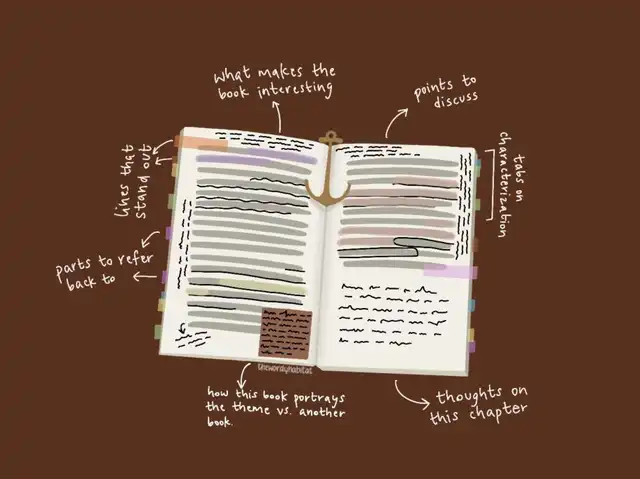 what makes the
book interesting
points to
discuss
lines that
stand out
tabs on
characterization
parts to refer
back to
thewordyhabitat
how this book portrays
the theme vs. another
book.
thoughts on
this chapter